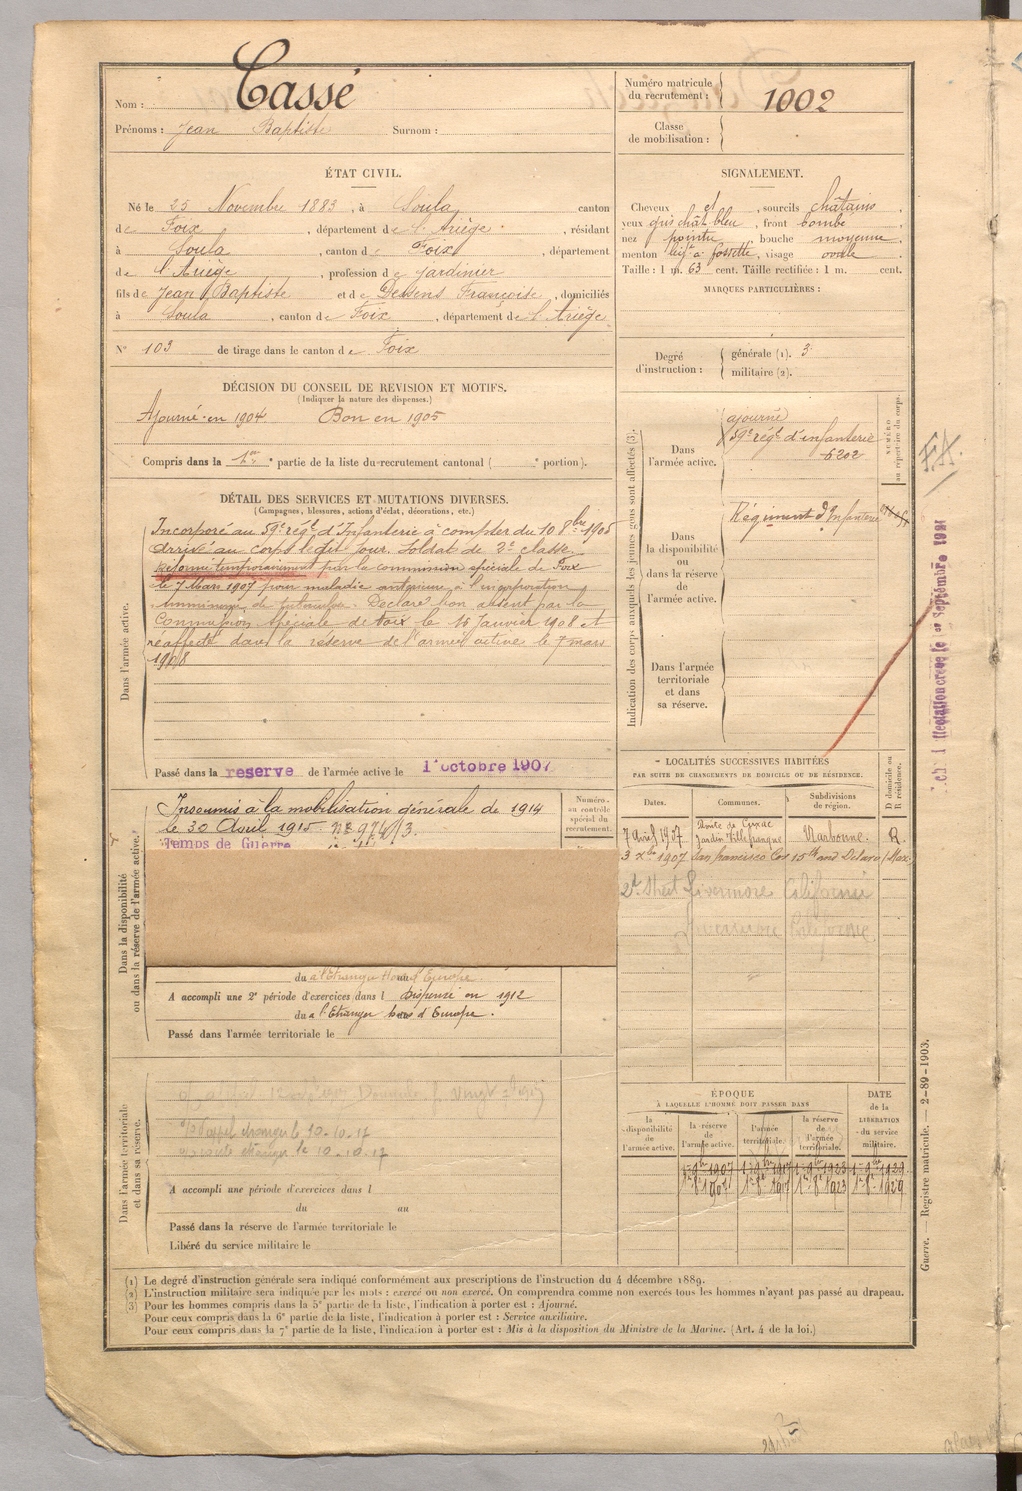 Nom : Cassé
Prénoms : Jean Baptiste Surnom :
Numéro matricule du recrutement : 1002
Classe de mobilisation :
ÉTAT CIVIL.
Né le 25 Novembre 1883, à Soula canton
de Foix, département de l'Ariège, résidant
à Soula, canton de Foix, département
de l'Ariège, profession de jardinier
fils de Jean Baptiste et de Dessens Françoise, domiciliés
à Soula, canton de Foix, département de l'Ariège
N° 103 de tirage dans le canton de Foix
SIGNALEMENT.
Cheveux et , sourcils châtains,
yeux gris chât. bleu, front bombé,
nez pointu, bouche moyenne,
menton à fossette, visage ovale
Taille : 1 m. 63 cent. Taille rectifiée : 1 m. cent.
MARQUES PARTICULIÈRES :
Degré d'instruction :
générale (1). 3
militaire (2).
DÉCISION DU CONSEIL DE REVISION ET MOTIFS.
(Indiquer la nature des dispenses.)
Ajourné en 1904 Bon en 1905
Compris dans la 1re partie de la liste du recrutement cantonal ( e portion).
DÉTAIL DES SERVICES ET MUTATIONS DIVERSES.
(Campagnes, blessures, actions d'éclat, décorations, etc.)
Dans l'armée active.
Incorporé au 59e régt d'Infanterie à compter du 10 8bre 1905
arrivé au corps le dit jour. Soldat de 2e classe
Réformé temporairement par la commission spéciale de Foix
le 7 Mars 1907 pour maladie antérieure à l'incorporation
de tuberculose. Déclaré bon absent par la
Commission spéciale de Foix le 16 Janvier 1908 et
réaffecté dans la réserve de l'armée active le 7 mars
1908
Passé dans la réserve de l'armée active le 1er octobre 1907
Indication des corps auxquels les jeunes gens sont affectés (3).
NUMÉRO au répertoire du corps.
Dans l'armée active.
ajourné
59e régt d'infanterie
6202
Dans la disponibilité ou dans la réserve de l'armée active.
Régiment d'Infanterie
Dans l'armée territoriale et dans sa réserve.
1er Septembre 1921
LOCALITÉS SUCCESSIVES HABITÉES
PAR SUITE DE CHANGEMENTS DE DOMICILE OU DE RÉSIDENCE.
Dates. Communes. Subdivisions de région. D domicile ou R résidence.
7 avril 1907 Route de Cuxac Jardin Villefranque Narbonne. R.
3 xbre 1907 San francisco 15th and
2d Street Livermore Californie
Californie
Dans la disponibilité ou dans la réserve de l'armée active.
Numéro au contrôle spécial du recrutement.
Insoumis à la mobilisation générale de 1914
le 30 Avril 1915.
Temps de Guerre
du à l'Etranger hors d'Europe
A accompli une 2e période d'exercices dans l Dispensé en 1912
du à l'Etranger hors d'Europe.
Passé dans l'armée territoriale le
Dans l'armée territoriale et dans sa réserve.
10-10-17
le 10-10-17
A accompli une période d'exercices dans l
du au
Passé dans la réserve de l'armée territoriale le
Libéré du service militaire le
ÉPOQUE
À LAQUELLE L'HOMME DOIT PASSER DANS
DATE de la LIBÉRATION du service militaire.
la disponibilité de l'armée active.
la réserve de l'armée active.
l'armée territoriale.
la réserve de l'armée territoriale.
1er 9bre 1907 1er 9bre 1917 1er 9bre 1923 1er 9bre 1929
1er 8bre 1907 1er 8bre 1917 1er 8bre 1923 1er 8bre 1929
Guerre. — Registre matricule. — 2-89-1903.
(1) Le degré d'instruction générale sera indiqué conformément aux prescriptions de l'instruction du 4 décembre 1889.
(2) L'instruction militaire sera indiquée par les mots : exercé ou non exercé. On comprendra comme non exercés tous les hommes n'ayant pas passé au drapeau.
(3) Pour les hommes compris dans la 5e partie de la liste, l'indication à porter est : Ajourné.
Pour ceux compris dans la 6e partie de la liste, l'indication à porter est : Service auxiliaire.
Pour ceux compris dans la 7e partie de la liste, l'indication à porter est : Mis à la disposition du Ministre de la Marine. (Art. 4 de la loi.)